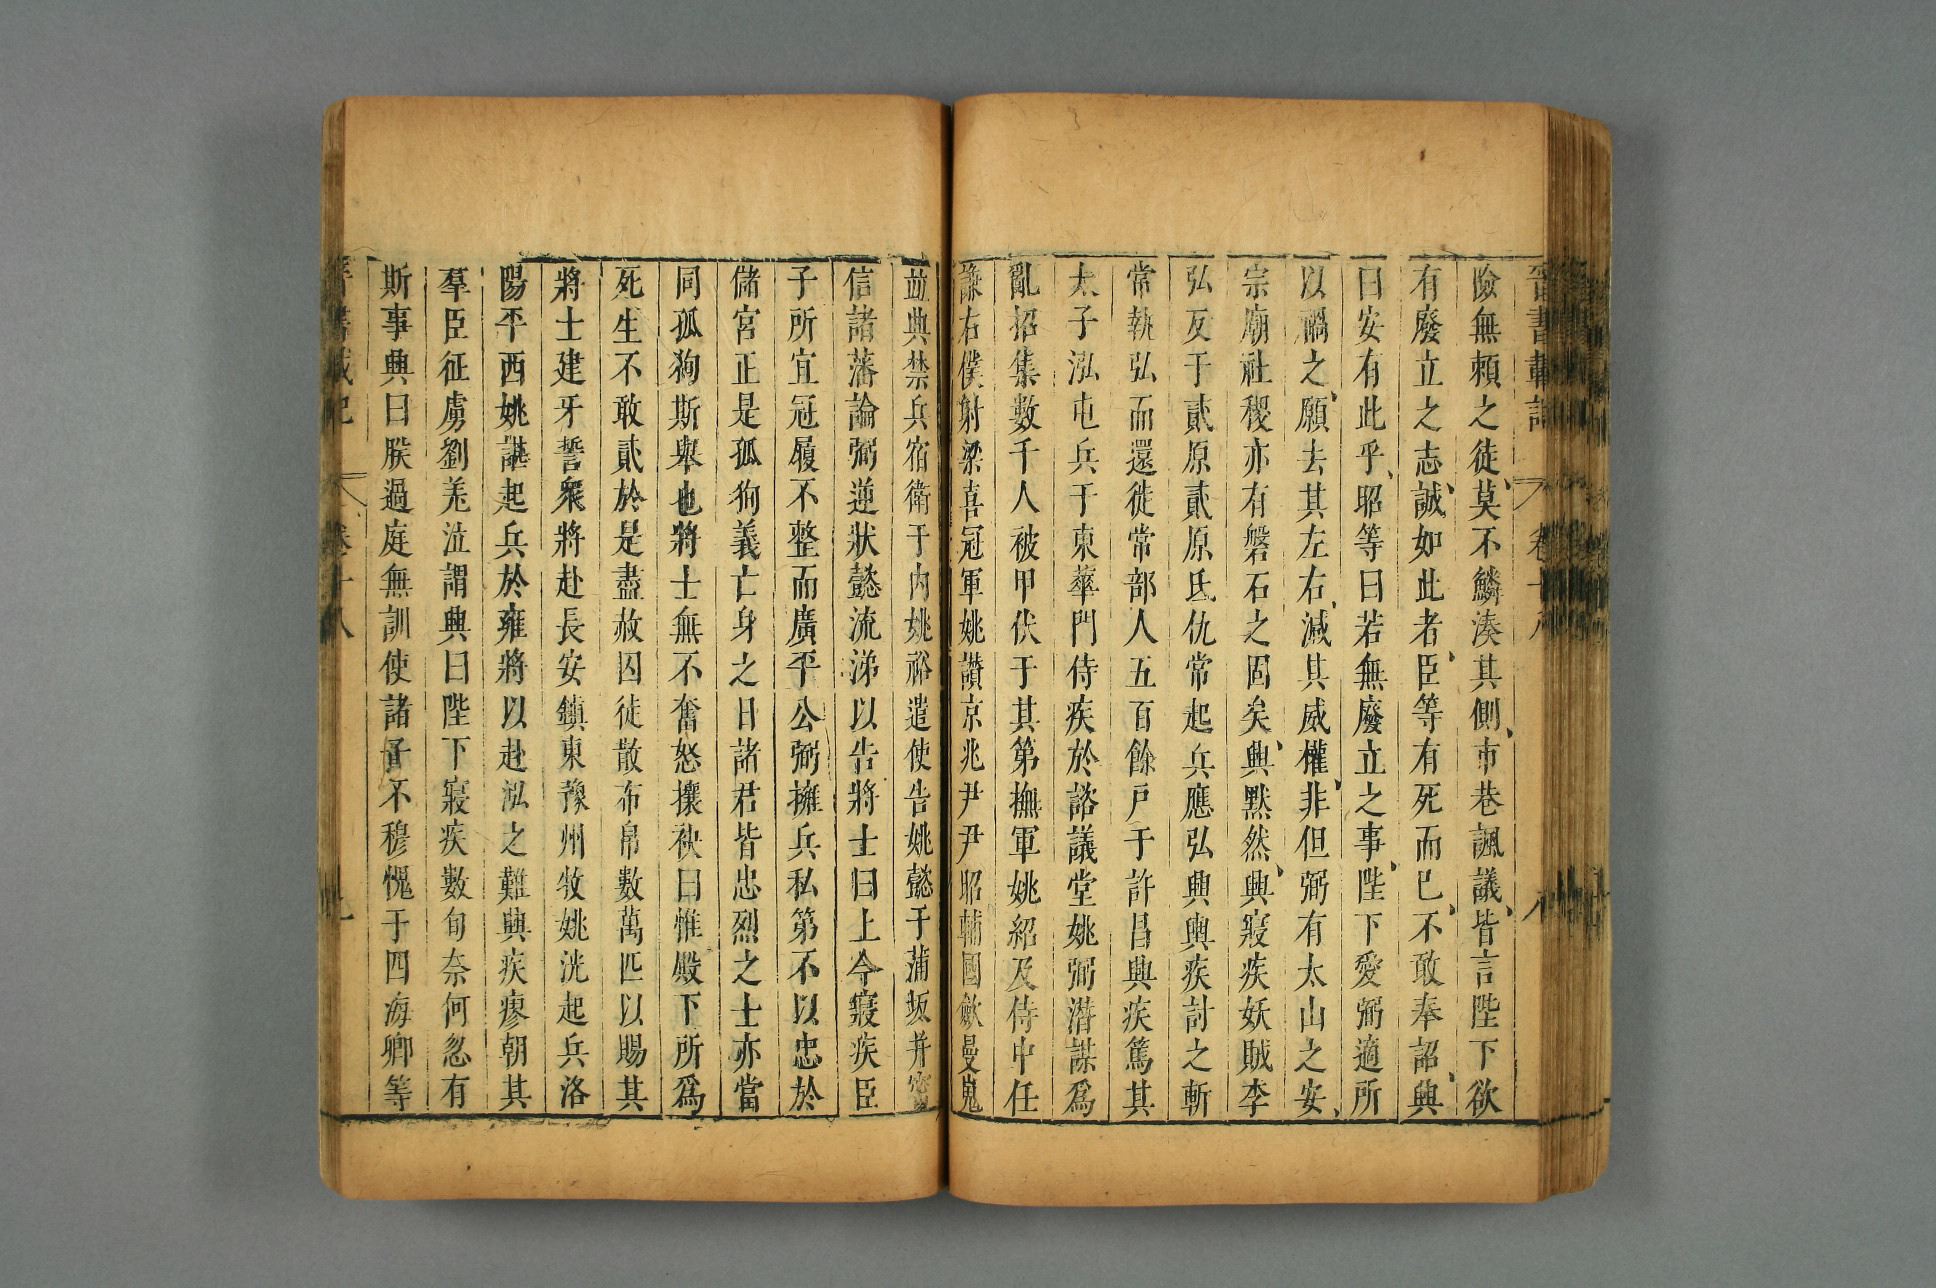 晉書載記 卷十八 八
險無賴之徒、莫不鱗湊其側、市巷諷議、皆言陛下欲
有廢立之志、誠如此者、臣等有死而已、不敢奉詔、興
曰安有此乎、昭等曰若無廢立之事、陛下愛弼適所
以禍之、願去其左右、減其威權、非但弼有太山之安、
宗廟社稷亦有磐石之固矣、興默然、興寢疾妖賊李
弘反于貳原貳原氐仇常起兵應弘興輿疾討之斬
常執弘而還徙常部人五百餘戶于許昌興疾篤其
太子泓屯兵于東華門侍疾於諮議堂姚弼潛謀爲
亂招集數千人被甲伏于其第撫軍姚紹及侍中任
謙右僕射梁喜冠軍姚讚京兆尹尹昭輔國歛曼嵬
並典禁兵宿衛于內姚裕遣使告姚懿于蒲坂并密
信諸藩論弼逆狀懿流涕以告將士曰上今寢疾臣
子所宜冠履不整而廣平公弼擁兵私第不以忠於
儲宮正是孤狥義亡身之日諸君皆忠烈之士亦當
同孤狥斯舉也將士無不奮怒攘袂曰惟殿下所爲
死生不敢貳於是盡赦囚徒散布帛數萬匹以賜其
將士建牙誓衆將赴長安鎮東豫州牧姚洸起兵洛
陽平西姚諶起兵於雍將以赴泓之難興疾瘳朝其
羣臣征虜劉羌泣謂興曰陛下寢疾數旬奈何忽有
斯事興曰朕過庭無訓使諸子不穆愧于四海卿等
晉書載記 卷十八 九